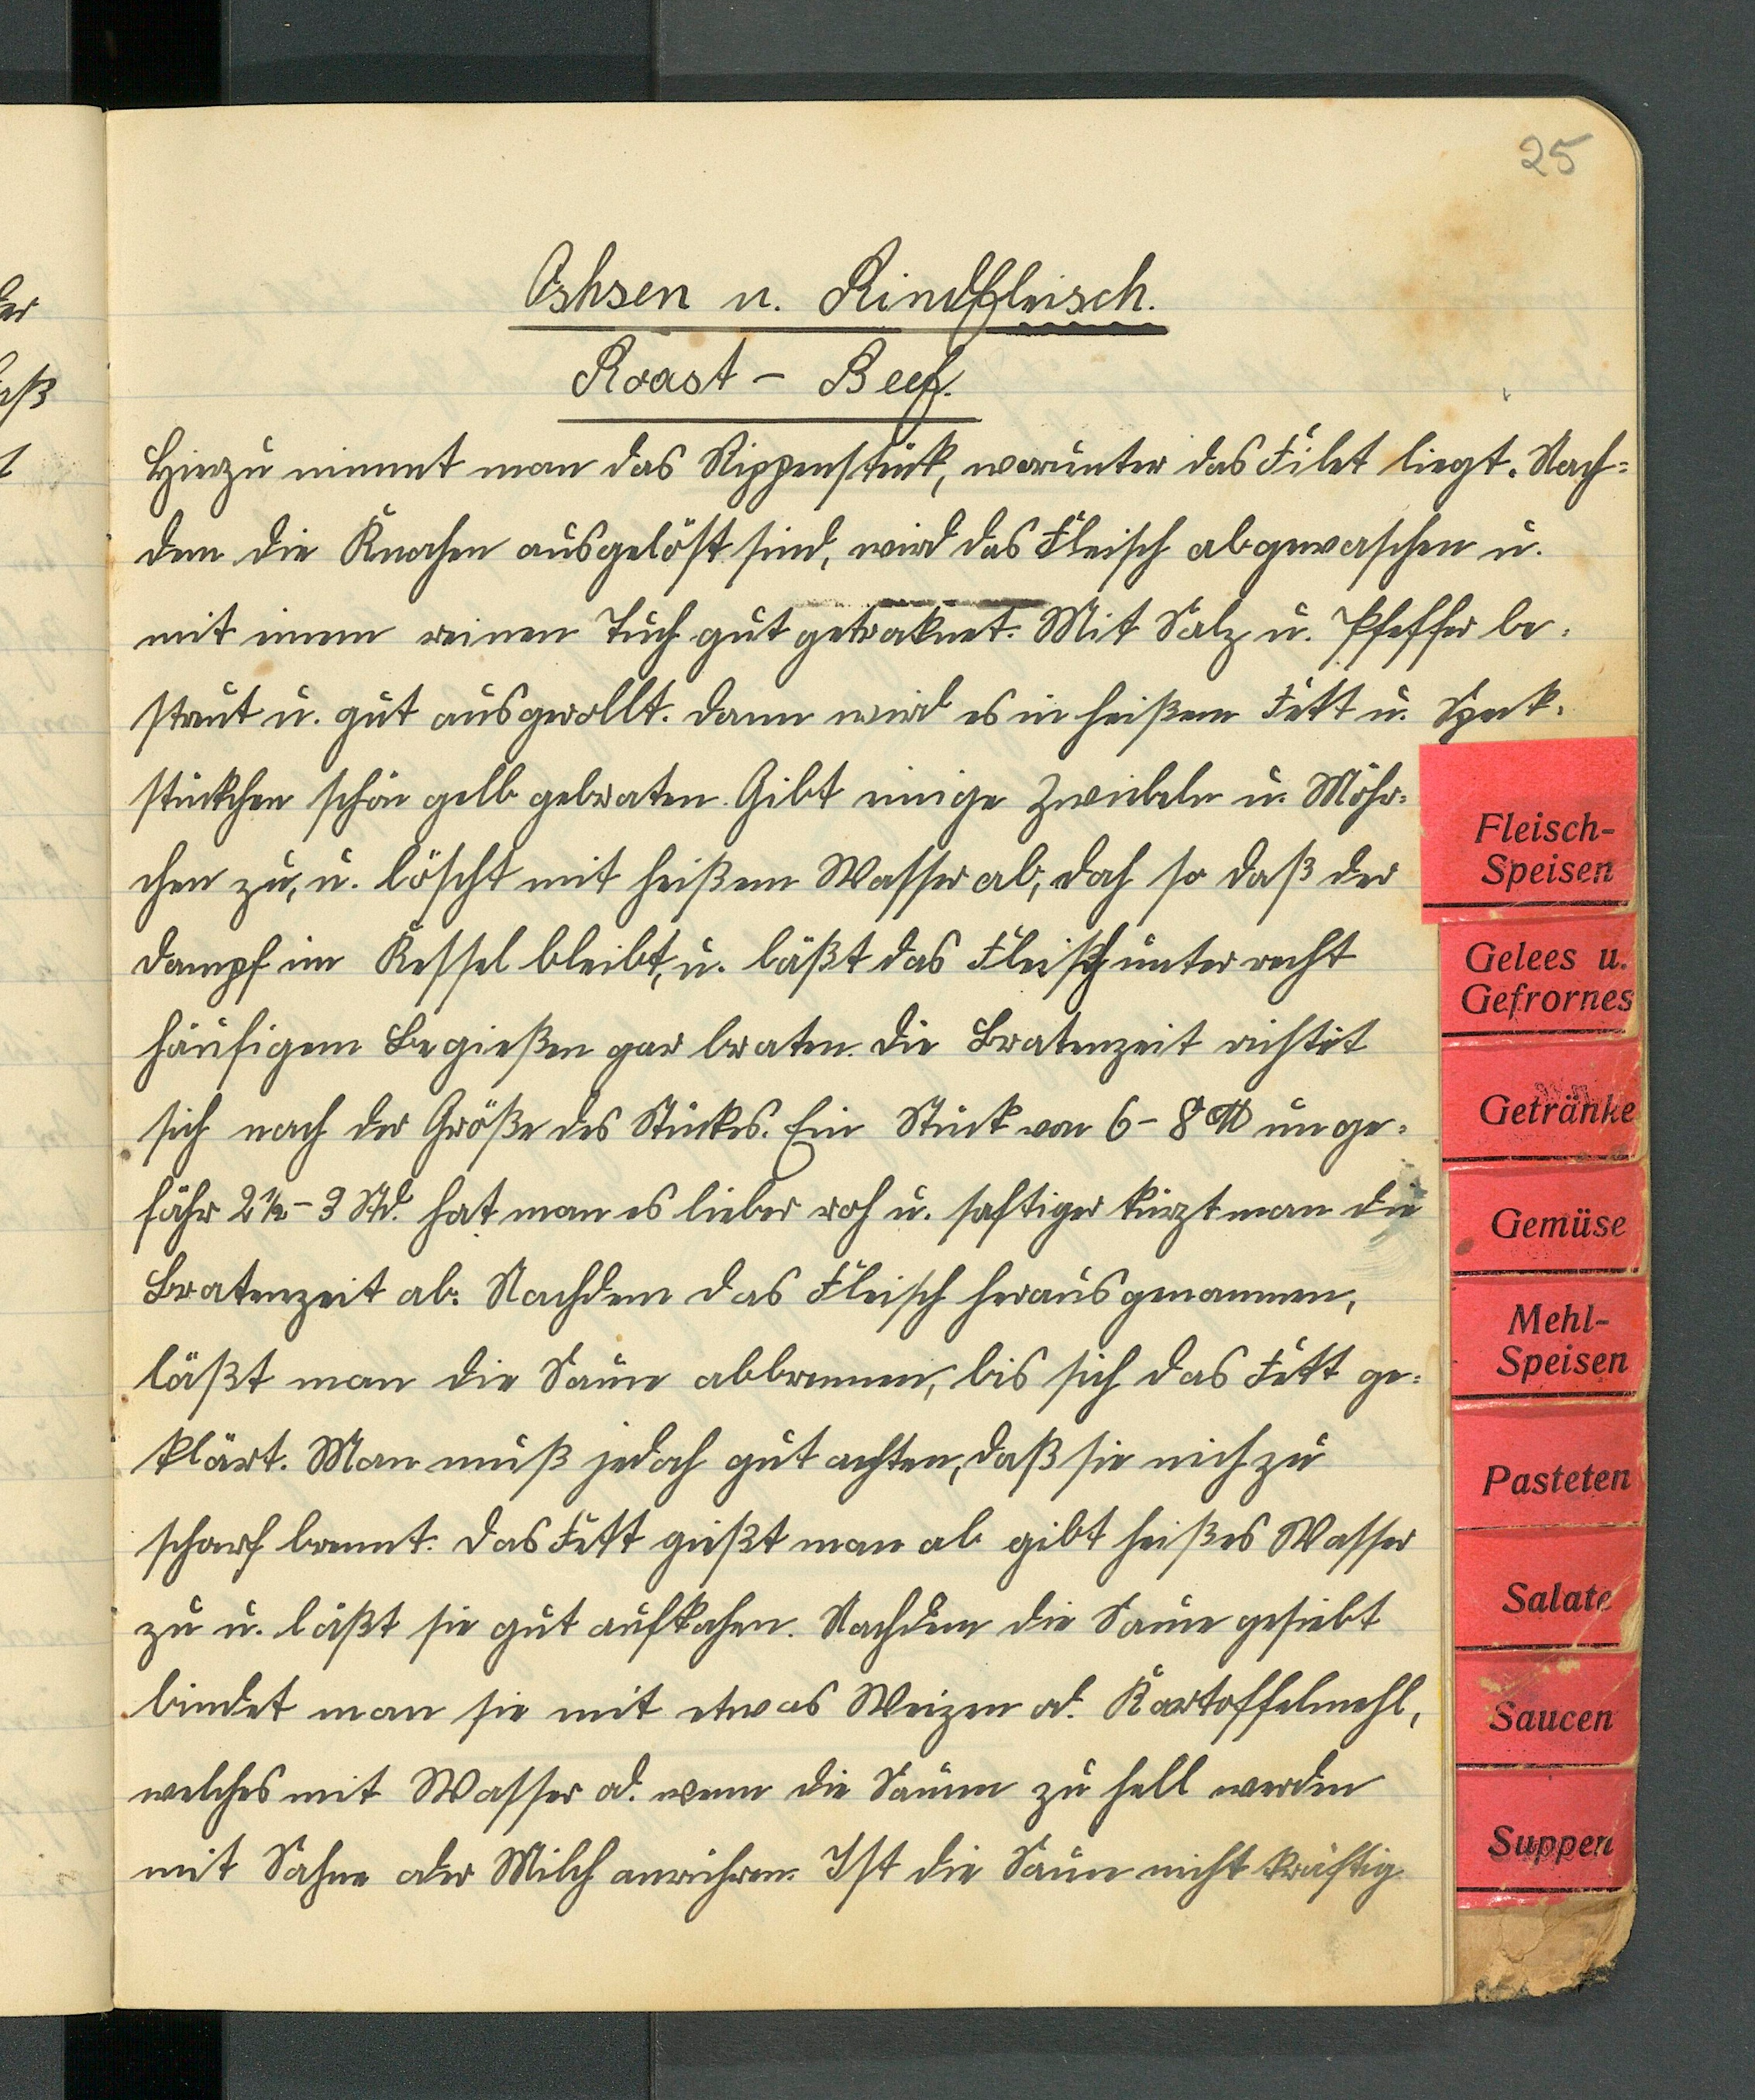 25
Ochsen u. Rindfleisch.
Roast - Beef.
Hierzu nimmt man das Rippenstück, worunter das Filet liegt. Nach=
dem die Knochen ausgelöst sind, wird das Fleisch abgewaschen u.
mit einem reinen Tuch gut getrocknet. Mit Salz u. Pfeffer be=
streut u. gut ausgerollt. Dann wird es in heißem Fett u. Speck=
stückchen schön gelb gebraten. Gibt einige Zwiebeln u. Möhr=
chen zu, u. löscht mit heißem Wasser ab, doch so daß der
Dampf im Kessel bleibt, u. läßt das Fleisch unter recht
häufigem Begießen gar braten. Die Bratenzeit richtet
sich nach der Größe des Stückes. Ein Stück von 6 - 8 ℔ unge=
fähr 2½ - 3 Std. hat man es lieber roh u. saftiger kürzt man die
Bratenzeit ab. Nachdem das Fleisch herausgenommen,
läßt man die Sauce abbrennen, bis sich das Fett ge=
klärt. Man muß jedoch gut achten, daß sie nich zu
scharf brennt. Das Fett gießt man ab gibt heißes Wasser
zu u. läßt sie gut aufkochen. Nachdem die Sauce gesiebt
bindet man sie mit etwas Weizen od. Kartoffelmehl,
welches mit Wasser od. wenn die Saucen zu hell werden
mit Sahne oder Milch anrühren. Ist die Sauce nicht kräftig
Fleisch-
Speisen
Gelees u.
Gefrornes
Getränke
Gemüse
Mehl-
Speisen
Pasteten
Salate
Saucen
Suppen